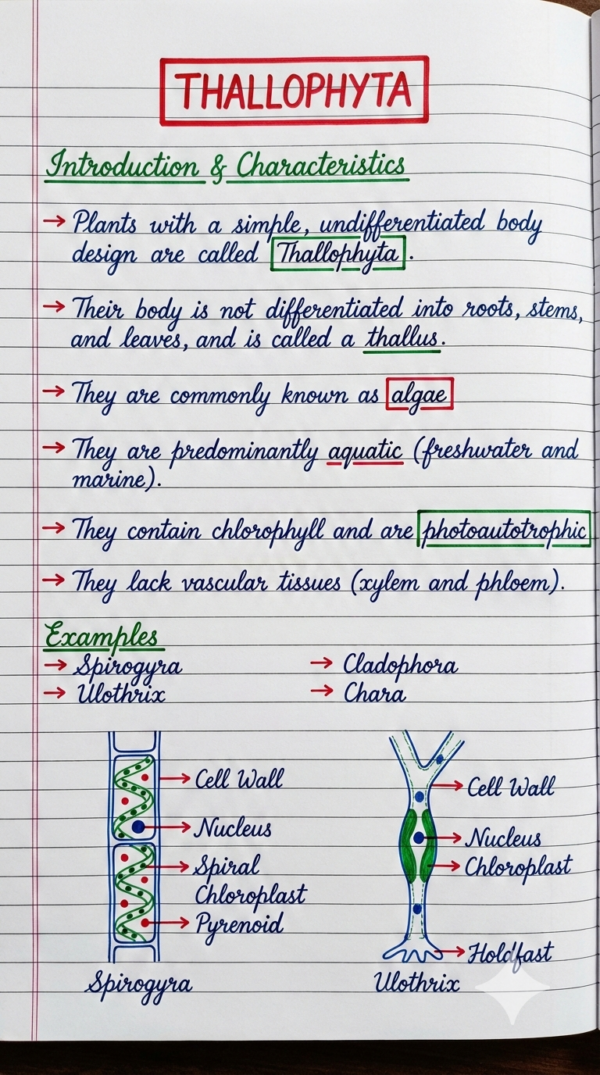 THALLOPHYTA
Introduction & Characteristics
→ Plants with a simple, undifferentiated body
design are called Thallophyta.
→ Their body is not differentiated into roots, stems,
and leaves, and is called a thallus.
→ They are commonly known as algae
→ They are predominantly aquatic (freshwater and
marine).
→ They contain chlorophyll and are photoautotrophic
→ They lack vascular tissues (xylem and phloem).
Examples
→ Spirogyra
→ Ulothrix
→ Cladophora
→ Chara
Cell Wall
Nucleus
Spiral
Chloroplast
Pyrenoid
Spirogyra
Cell Wall
Nucleus
Chloroplast
Holdfast
Ulothrix